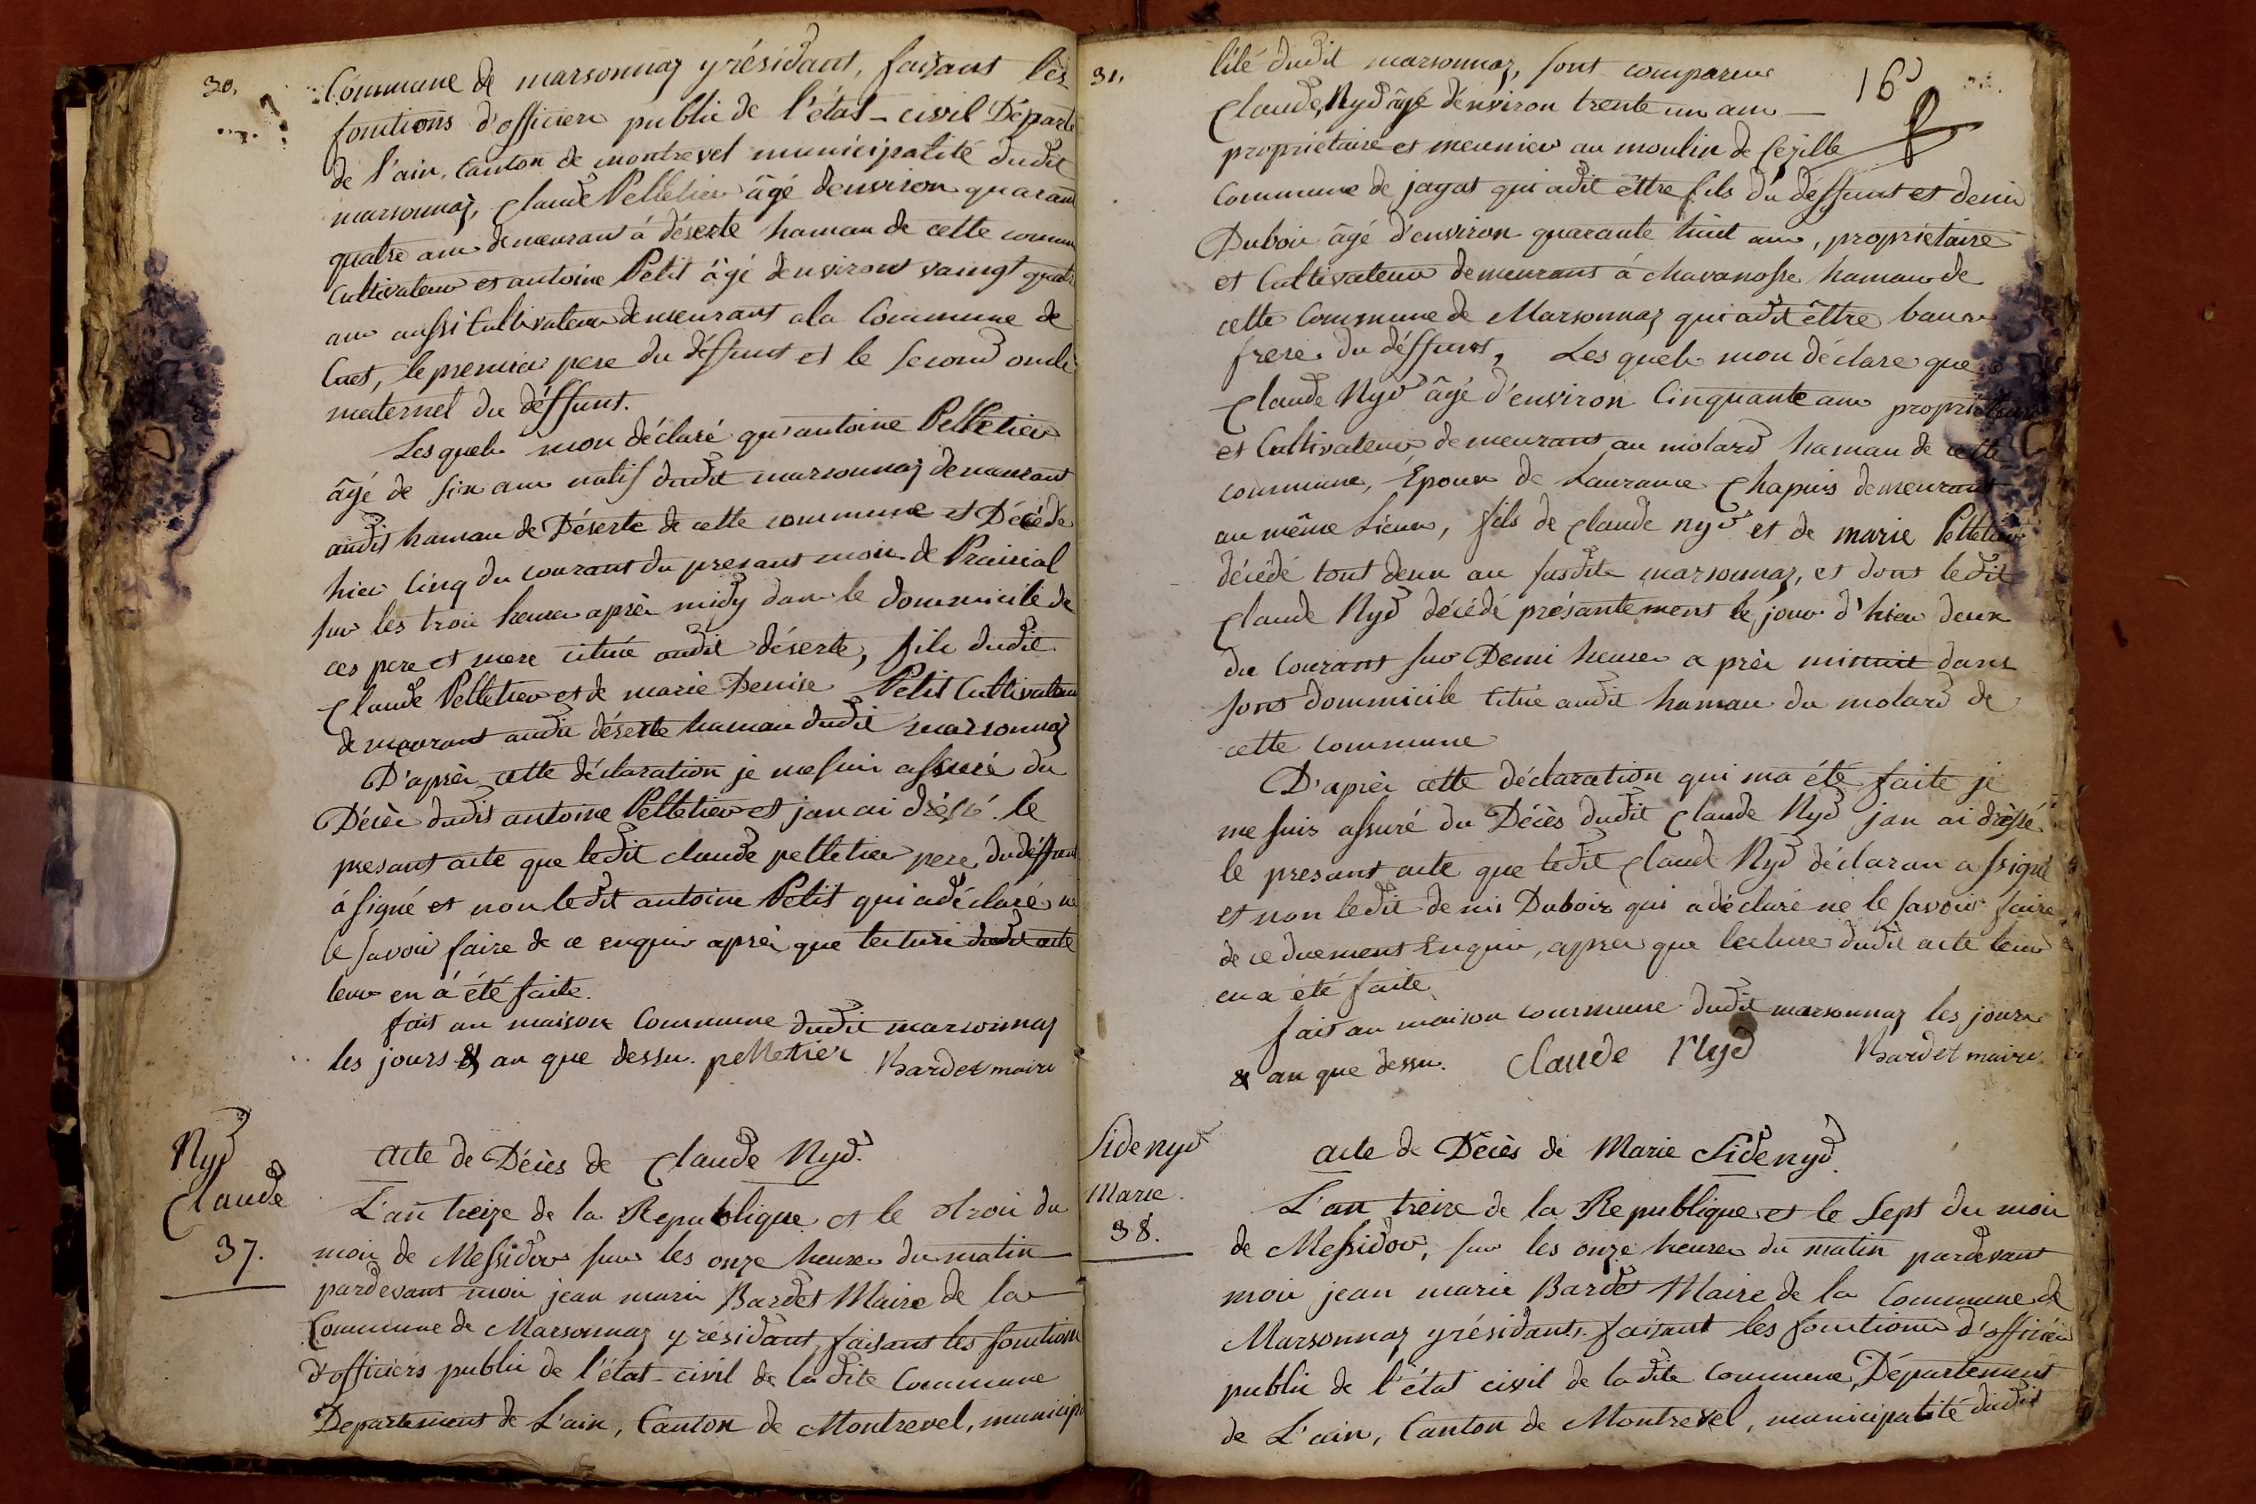 30.
Commune de marsonnaz y résidant, faisant les
fonctions d'officier public de l'état-civil Départ
de l'ain, Canton de montrevel municipalité dudit
marsonnaz, Claude Pelletier âgé denviron quarant
quatre ans demeurant á déserte hamau de cette commun
Cultivateur et antoine Petit âgé denviront vaingt quatre
ans aussi Cultivateur demeurant ala Commune de
Cuet, le premier pere du déffunt et le second oncle
maternel du déffunt.
Lesquels mon déclaré qu'antoine Pelletier
âgé de six ans natif dudit marsonnaz demeurant
audit hamau de Déserte de cette commune et Décédé
hier Cinq du courant du presant mois de Prairial
sur les trois heures après midy dans le dommicile de
ces pere et mere citué audit déserte, fils dudit
Claude Pelletier et de marie Denise Petit Cultivateur
demeurant audit déserte hamau dudit marsonnaz
D'après cette déclaration je me suis assuré du
Décès dudit antoine Pelletier et jan ai dréssé le
presant acte que ledit claude pelletier pere du déffunt
á signé et non ledit antoine Petit qui a déclaré ne
le savoir faire de ce enquis après que lecture dudit acte
leur en á été faite.
fait an maison Commune dudit marsonnaz
les jours & an que dessu. pelletier Bardet maire
Nyd
Claude
37.
Acte de Décès de Claude Nyd.
L'an treize de la Republique et le trois du
mois de Messidor sur les onze heures du matin
pardevant moi jean marie Bardet Maire de la
Commune de Marsonnaz y résidant, faisant les fonctions
d'officiers public de l'état-civil de ladite Commune
Departement de L'ain, Canton de Montrevel, municipa
31.
16
lité dudit marsonnaz, sont comparus
Claude, Nyd âgé d'environ trente un ans
propriétaire et meunier au moulin de Cezille
Commune de jayat qui adit êttre fils du déffunt et denis
Dubois âgé d'environ quarante huit ans, propriétaire
et Cultivateur demeurant á chavanosse hamau de
cette Commune de Marsonnaz qui adit êttre baux
frere du déffunt, Lesquels mon déclare que
Claude Nyd âgé d'environ Cinquante ans propriétaire
et Cultivateur demeurant au molard hamau de cette
commune, Epoux de Laurance Chapuis demeurant
au même Lieux, fils de claude nyd et de marie Pelletier
décédé tout deux au susdit marsonnaz, et dont ledit
Claude Nyd décédé présantement le jour d'hier deux
du Courant sur Demi heures a près minuit dans
sont dommicile citué audit hamau du molard de
cette commune
D'après cette déclaration qui ma été faite je
me suis assuré du Décès dudit Claude Nyd jan ai dréssé
le presant acte que ledit Claude Nyd déclaran a signé
et non ledit denis Dubois qui a déclaré ne le savoir faire
de ce duement Enquis, apres que lecture dudit acte leur
en a été faite
fait an maison commune dudit marsonnaz les jours
& an que dessu. Claude Nyd Bardet maire
Sidenyd
Marie.
38.
Acte de Décès de Marie Sidenyd.
L'an treize de la Republique et le Sept du mois
de Messidor, sur les onze heures du matin pardevant
moi jean marie Bardet Maire de la Commune de
Marsonnaz y résidant, faisant les fonctions d'officier
public de l'état civil de ladite Commune, Département
de L'ain, Canton de Montrevel, municipalité dudit